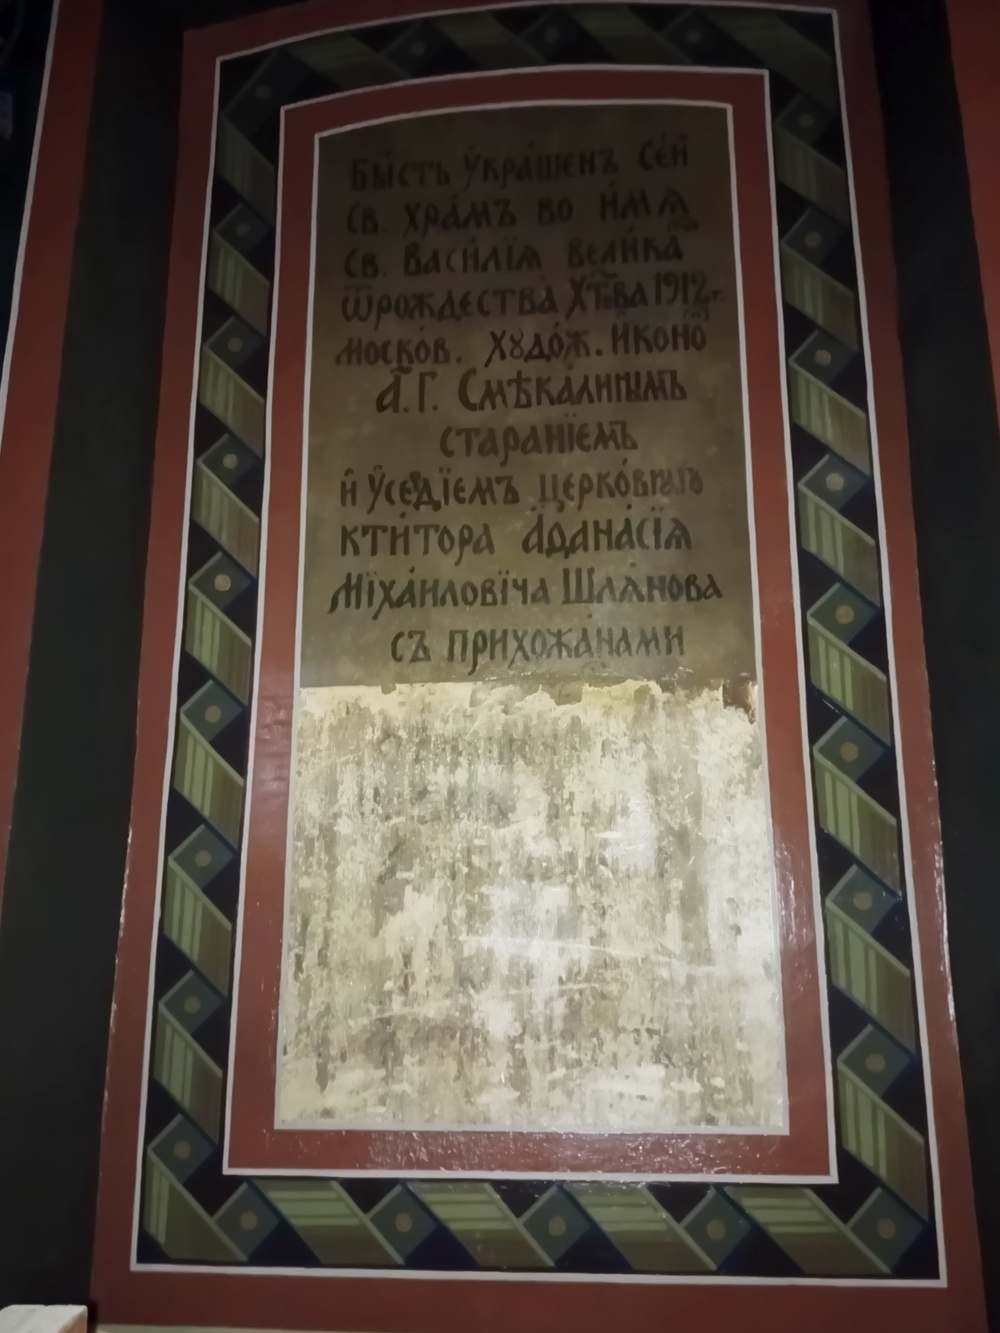 Бы́сть ўкра́шенъ Се́й
Св. хра́мъ во и́мѧ
Св. Васи́лїѧ вели́ка
ѿрождества̀ Хт҃ова 1912 г.
Моско́в. Хꙋдо́ж. и҆коно
А҆. Г. Смѣка́линымъ
старанїемъ
и҆ ў́сердїемъ церко́внаго
кти́тора А҆ѳана́сїѧ
Мїха́иловїча Шлѧ́нова
съ прихожа́нами